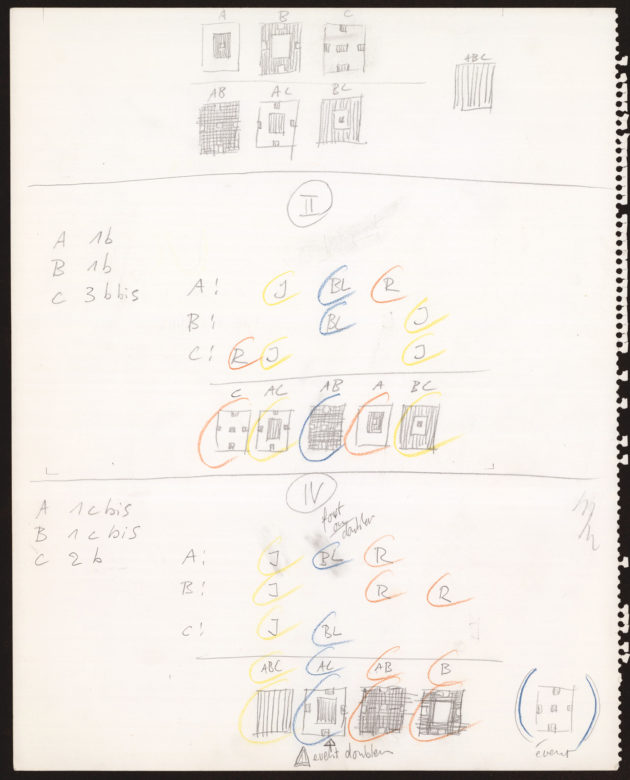 A B C
ABC
AB AC BC
II
A 1b
B 1b
C 3 b bis
A! J BL R
B! BL J
C! R J J
C AC AB A BC
IV
A 1c bis
B 1c bis
C 2 b
doubler
A! J BL R
B! J R R
C! J BL
ABC AC AB B
event doubler
event